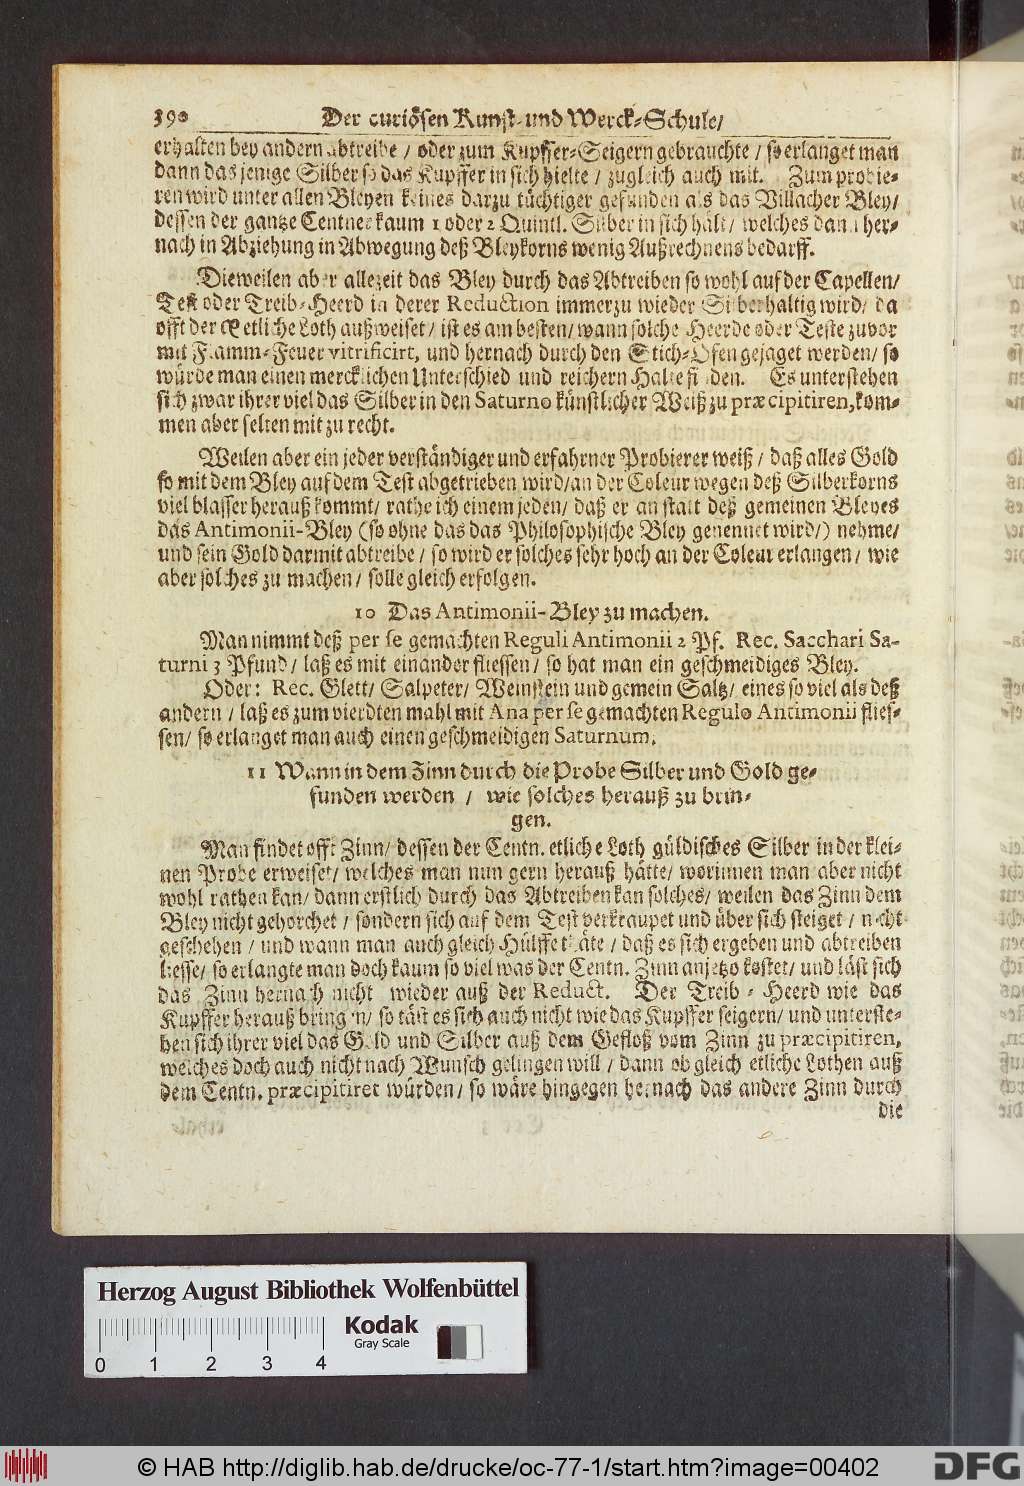 390 Der curiösen Kunst-und Werck-Schule/
erhalten bey andern abtreibe / oder zum Kupffer-Seigern gebrauchte / so erlanget man
dann das jenige Silber so das Kupffer in sich hielte / zugleich auch mit. Zum probie-
ren wird unter allen Bleyen keines darzu tüchtiger gefunden als das Villacher Bley/
dessen der gantze Centner kaum 1 oder 2 Quintl. Silber in sich hält / welches dann her-
nach in Abziehung in Abwegung deß Bleykorns wenig Außrechnens bedarff.
Dieweilen aber allezeit das Bley durch das Abtreiben so wohl auf der Capellen/
Test oder Treib-Heerd in derer Reduction immerzu wieder Silberhaltig wird/ da
offt der etliche Loth außweiset / ist es am besten/ wann solche Heerde oder Teste zuvor
mit Flamm-Feuer vitrificirt, und hernach durch den Stich-Ofen gejaget werden/ so
würde man einen mercklichen Unterschied und reichern Halte finden. Es unterstehen
sich zwar ihrer viel das Silber in den Saturno künstlicher Weiß zu præcipitiren, kom-
men aber selten mit zu recht.
Weilen aber ein jeder verständiger und erfahrner Probierer weiß / daß alles Gold
so mit dem Bley auf dem Test abgetrieben wird/ an der Coleur wegen deß Silberkorns
viel blasser herauß kommt/ rathe ich einem jeden/ daß er an statt deß gemeinen Bleyes
das Antimonii-Bley (so ohne das das Philosophische Bley genennet wird/) nehme/
und sein Gold darmit abtreibe / so wird er solches sehr hoch an der Coleur erlangen/ wie
aber solches zu machen/ solle gleich erfolgen.
10 Das Antimonii-Bley zu machen.
Man nimmt deß per se gemachten Reguli Antimonii 2 Pf. Rec. Sacchari Sa-
turni 3 Pfund/ laß es mit einander fliessen/ so hat man ein geschmeidiges Bley.
Oder: Rec. Glett/ Salpeter/ Weinstein und gemein Saltz/ eines so viel als deß
andern / laß es zum vierdten mahl mit Ana per se gemachten Regulo Antimonii flies-
sen/ so erlanget man auch einen geschmeidigen Saturnum.
11 Wann in dem Zinn durch die Probe Silber und Gold ge-
funden werden / wie solches herauß zu brin-
gen.
Man findet offt Zinn/ dessen der Centn. etliche Loth güldisches Silber in der klei-
nen Probe erweiset/ welches man nun gern herauß hätte/ worinnen man aber nicht
wohl rathen kan/ dann erstlich durch das Abtreiben kan solches/ weilen das Zinn dem
Bley nicht gehorchet / sondern sich auf dem Test verkraupet und über sich steiget / nicht
geschehen / und wann man auch gleich Hülffe thäte / daß es sich ergeben und abtreiben
liesse/ so erlangte man doch kaum so viel was der Centn. Zinn anjetzo kostet/ und läst sich
das Zinn hernach nicht wieder auß der Reduct. Der Treib-Heerd wie das
Kupffer herauß bringen/ so läst es sich auch nicht wie das Kupffer seigern/ und unterste-
hen sich ihrer viel das Gold und Silber auß dem Gefloß vom Zinn zu præcipitiren,
welches doch auch nicht nach Wunsch gelingen will / dann ob gleich etliche Lothen auß
dem Centn. præcipitiret würden/ so wäre hingegen hernach das andere Zinn durch
die
Herzog August Bibliothek Wolfenbüttel
Kodak
Gray Scale
0 1 2 3 4
© HAB http://diglib.hab.de/drucke/oc-77-1/start.htm?image=00402
DFG